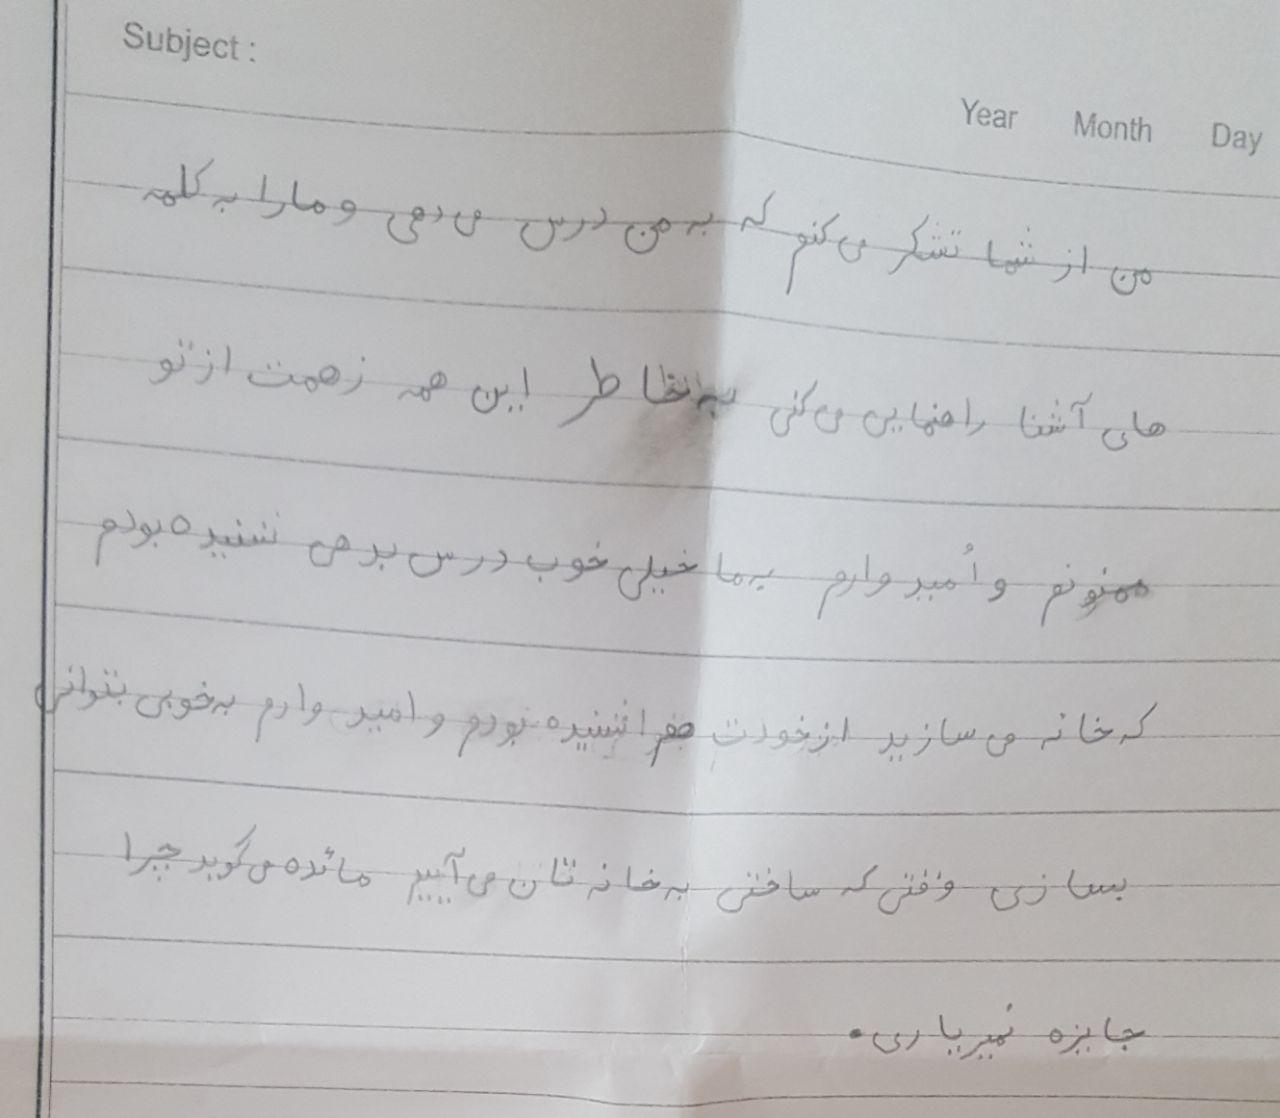 Subject :
Year Month Day
من از شما تشکر می کنم که به من درس می دهی و ما را به کلمه
های آشنا راهنمایی می کنی به خاطر این همه زحمت از تو
ممنونم و اُمید وارم به ما خیلی خوب درس بدهی نشنیده بودم
که خانه می سازید از خودت چرا نشنیده بودم و امید وارم به خوبی بتوانی
بسازی وقتی که ساختی به خانه تان می آییم مائده می گوید چرا
جایزه نمیریاری.